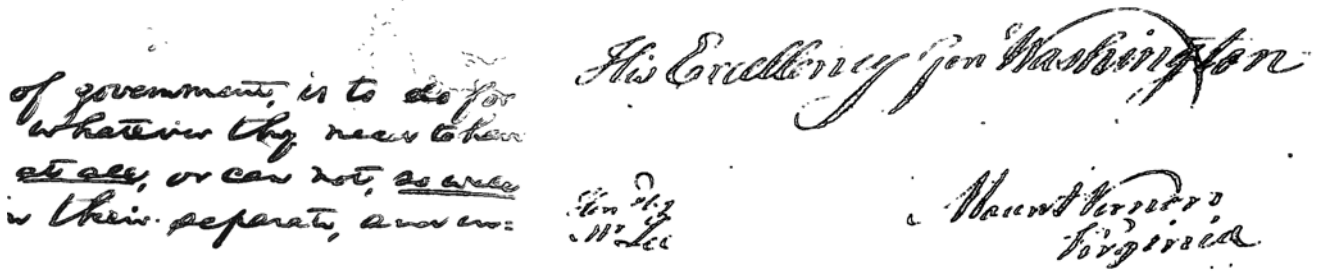 of government, is to do for
whatever they need to have
at all, or can not, so well
in their separate, and in=
His Excellency Gen Washington
Hon bly
Mr Lee
Mount Vernon
Virginia